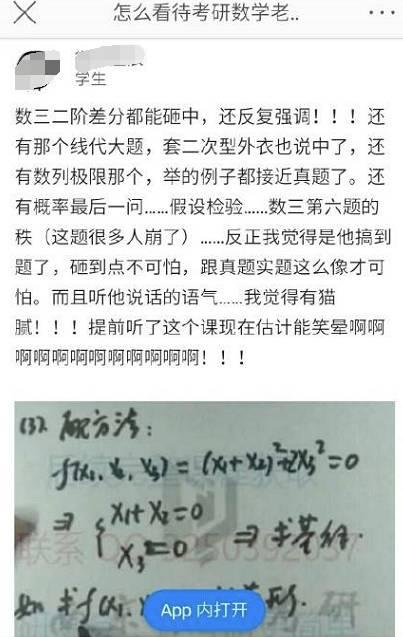 怎么看待考研数学老..
学生
数三二阶差分都能砸中，还反复强调！！！还
有那个线代大题，套二次型外衣也说中了，还
有数列极限那个，举的例子都接近真题了。还
有概率最后一问……假设检验……数三第六题的
秩（这题很多人崩了）……反正我觉得是他搞到
题了，砸到点不可怕，跟真题实题这么像才可
怕。而且听他说话的语气……我觉得有猫
腻！！！提前听了这个课现在估计能笑晕啊啊
啊啊啊啊啊啊啊啊啊啊！！！
(3) 配方法：
f(x₁, x₂, x₃) = (x₁+x₂)²+2x₃²=0
⇒ { x₁+x₂=0
x₃=0 ⇒ 求基础.
联系 QQ
如 求f(x₁,
App 内打开